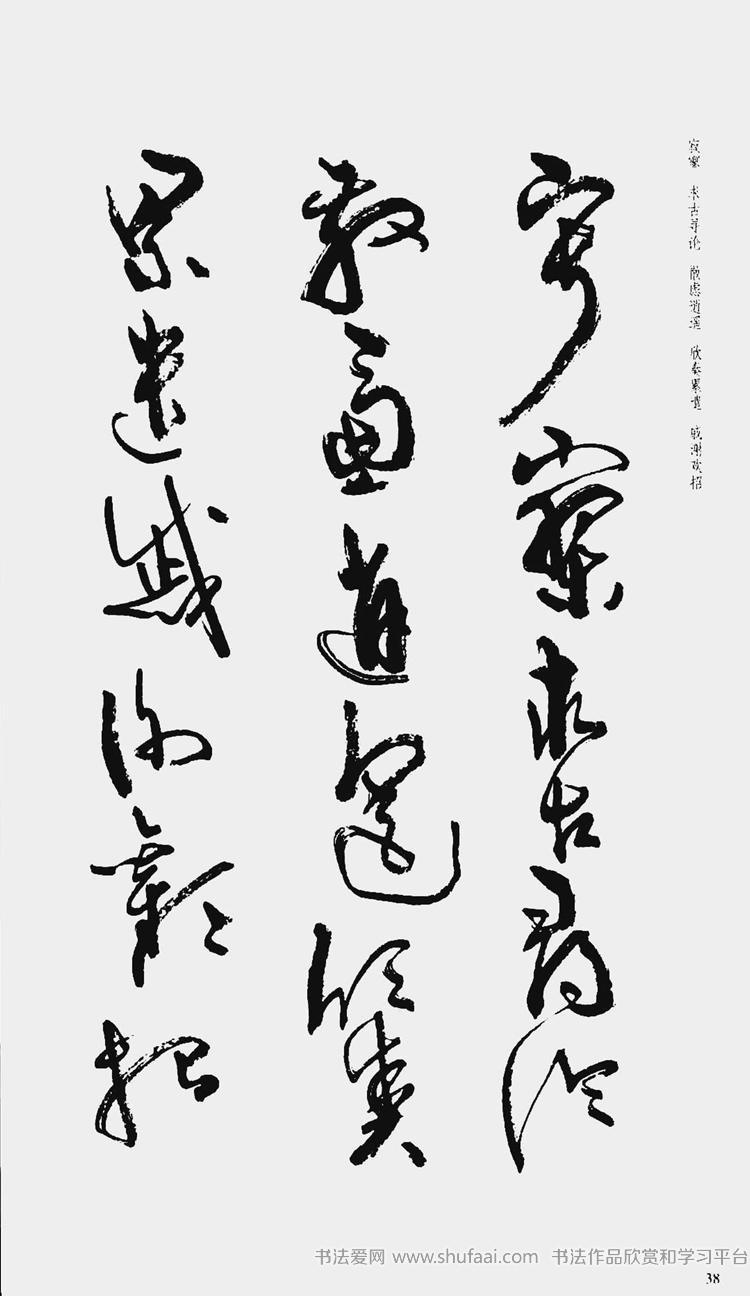 寂寥 求古寻论 散虑逍遥 欣奏累遣 戚谢欢招
寂寥求古尋論
散慮逍遙欣奏
累遣慼謝歡招
书法爱网 www.shufaai.com 书法作品欣赏和学习平台
38